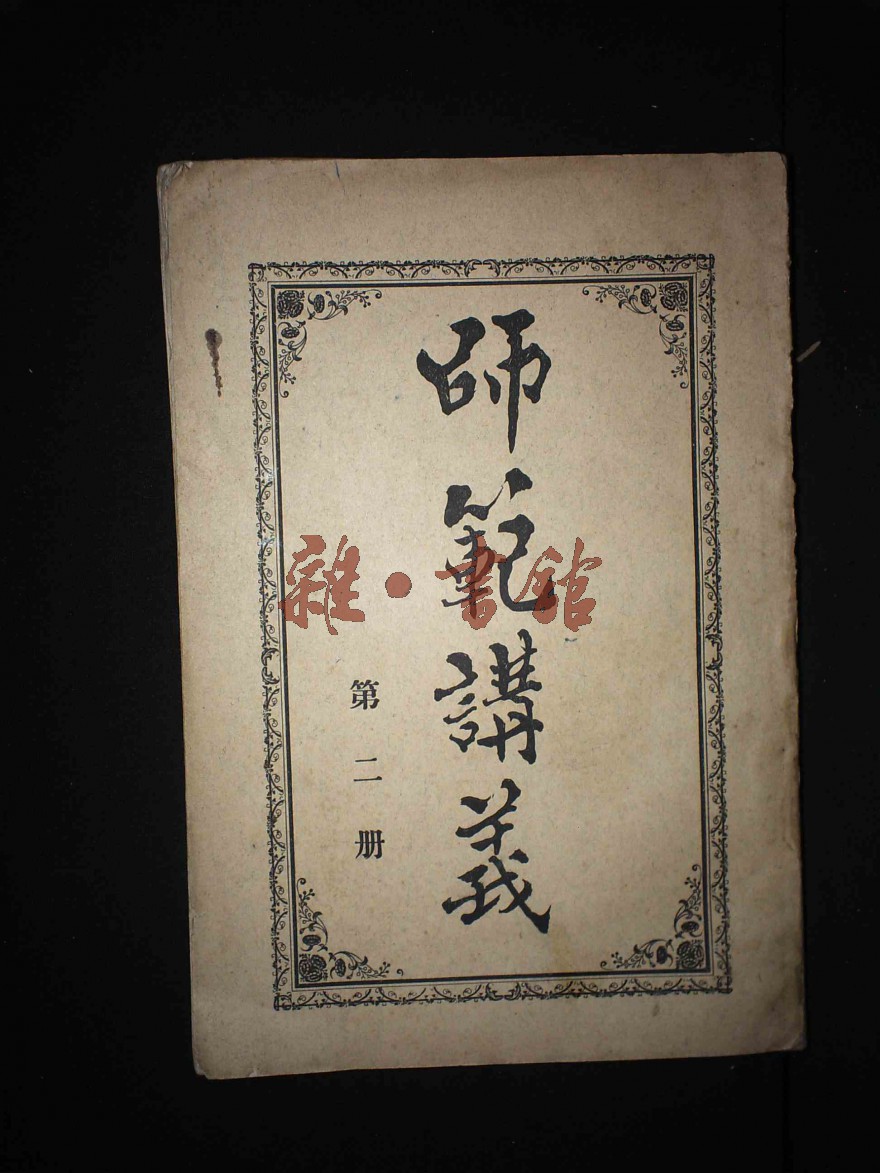 師範講義
第二册
雜·書館